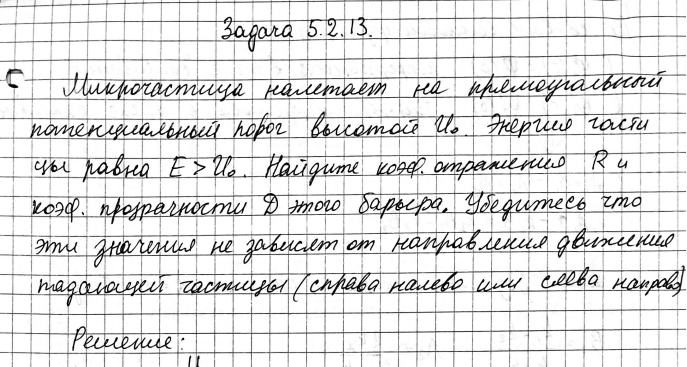 Задача 5.2.13.
Микрочастица налетает на прямоугольный
потенциальный порог высотой U₀. Энергия части
цы равна E > U₀. Найдите коэф. отражения R и
коэф. прозрачности D этого барьера. Убедитесь что
эти значения не зависят от направления движения
падающей частицы (справа налево или слева направо)
Решение:
U